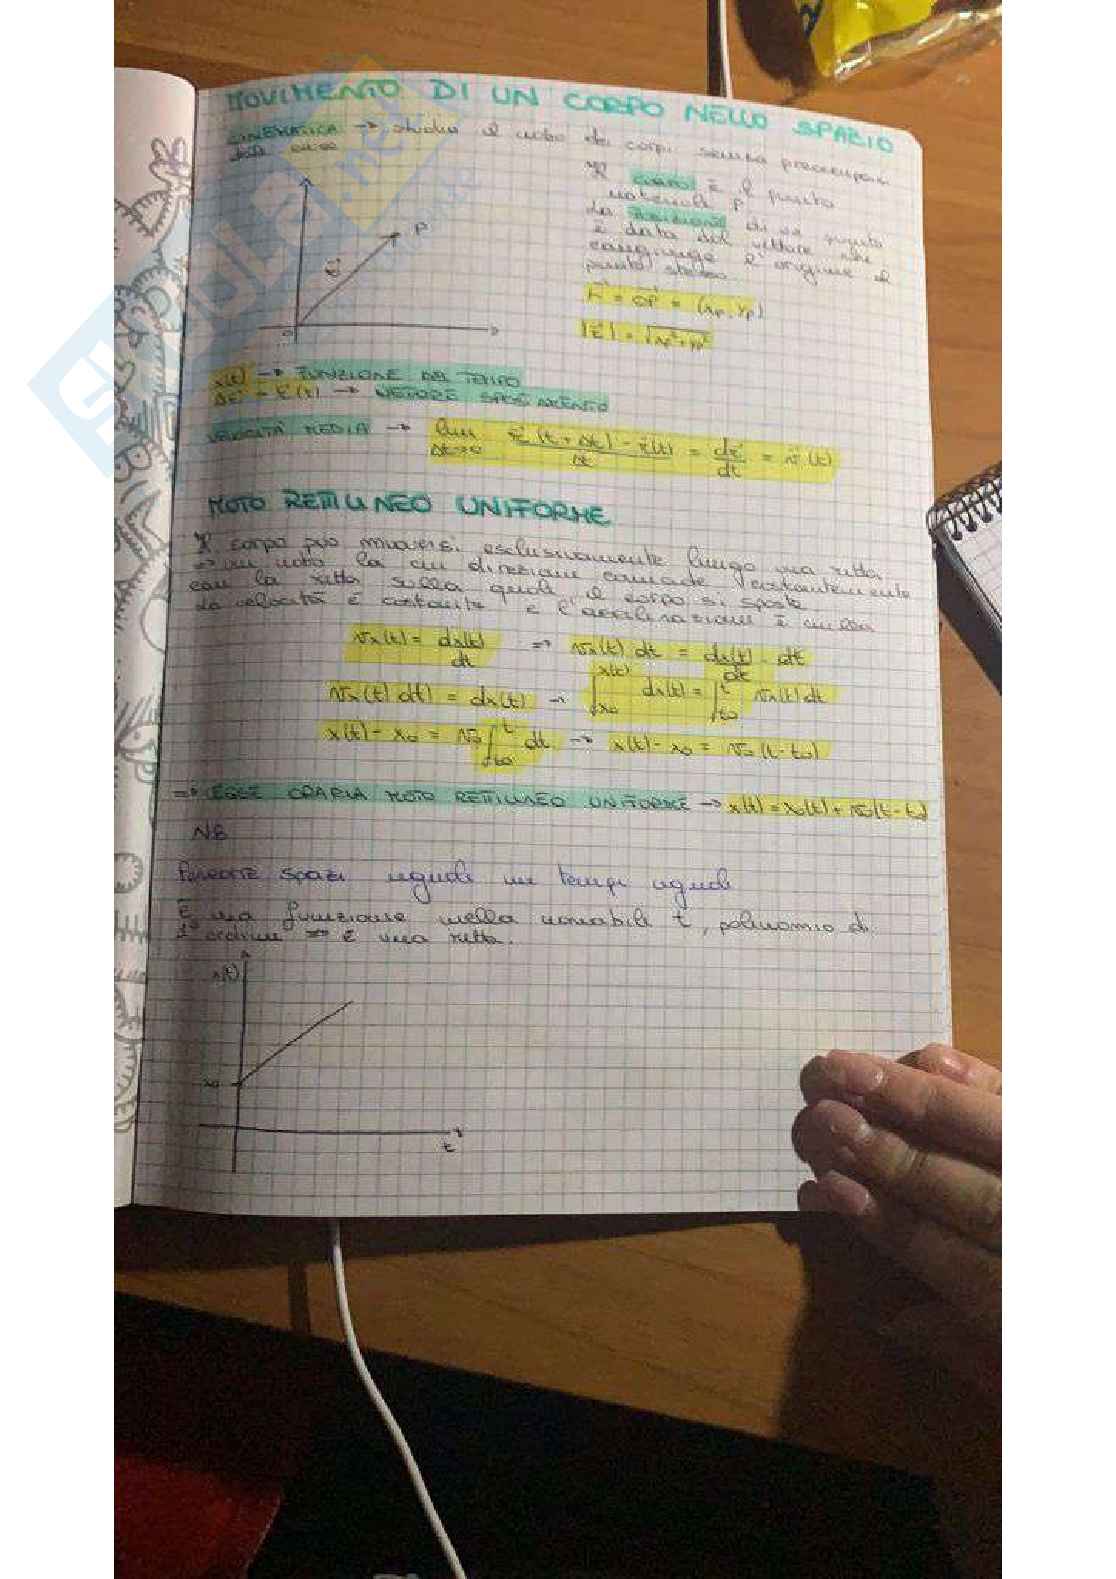 MOVIMENTO DI UN CORPO NELLO SPAZIO
CINEMATICA → studia il moto dei corpi senza preoccuparsi
delle cause
Il corpo è il punto
materiale P
La posizione di un punto
è data dal vettore che
congiunge l'origine al
punto stesso
r = OP = (xp, yp)
|r| = √xp²+yp²
P
r
O
x(t) → FUNZIONE DEL TEMPO
Δr = r(t) → VETTORE SPOSTAMENTO
VELOCITÀ MEDIA → lim Δt→0 r(t+Δt) - r(t) / Δt = dr/dt = v(t)
MOTO RETTILINEO UNIFORME
Il corpo può muoversi esclusivamente lungo una retta
⇒ un moto la cui direzione coincide costantemente
con la retta sulla quale il corpo si sposta
La velocità è costante e l'accelerazione è nulla
vx(t) = dx(t)/dt ⇒ vx(t) dt = dx(t)/dt · dt
vx(t) dt) = dx(t) → ∫x0 x(t) dx(t) = ∫t0 t vx(t) dt
x(t) - x0 = v0 ∫t0 t dt → x(t) - x0 = v0 (t - t0)
⇒ LEGGE ORARIA MOTO RETTILINEO UNIFORME → x(t) = x0(t) + v0(t - t0)
NB
Percorre spazi uguali in tempi uguali
È una funzione nella variabile t, polinomio di
1° ordine ⇒ è una retta.
x(t)
x0
t